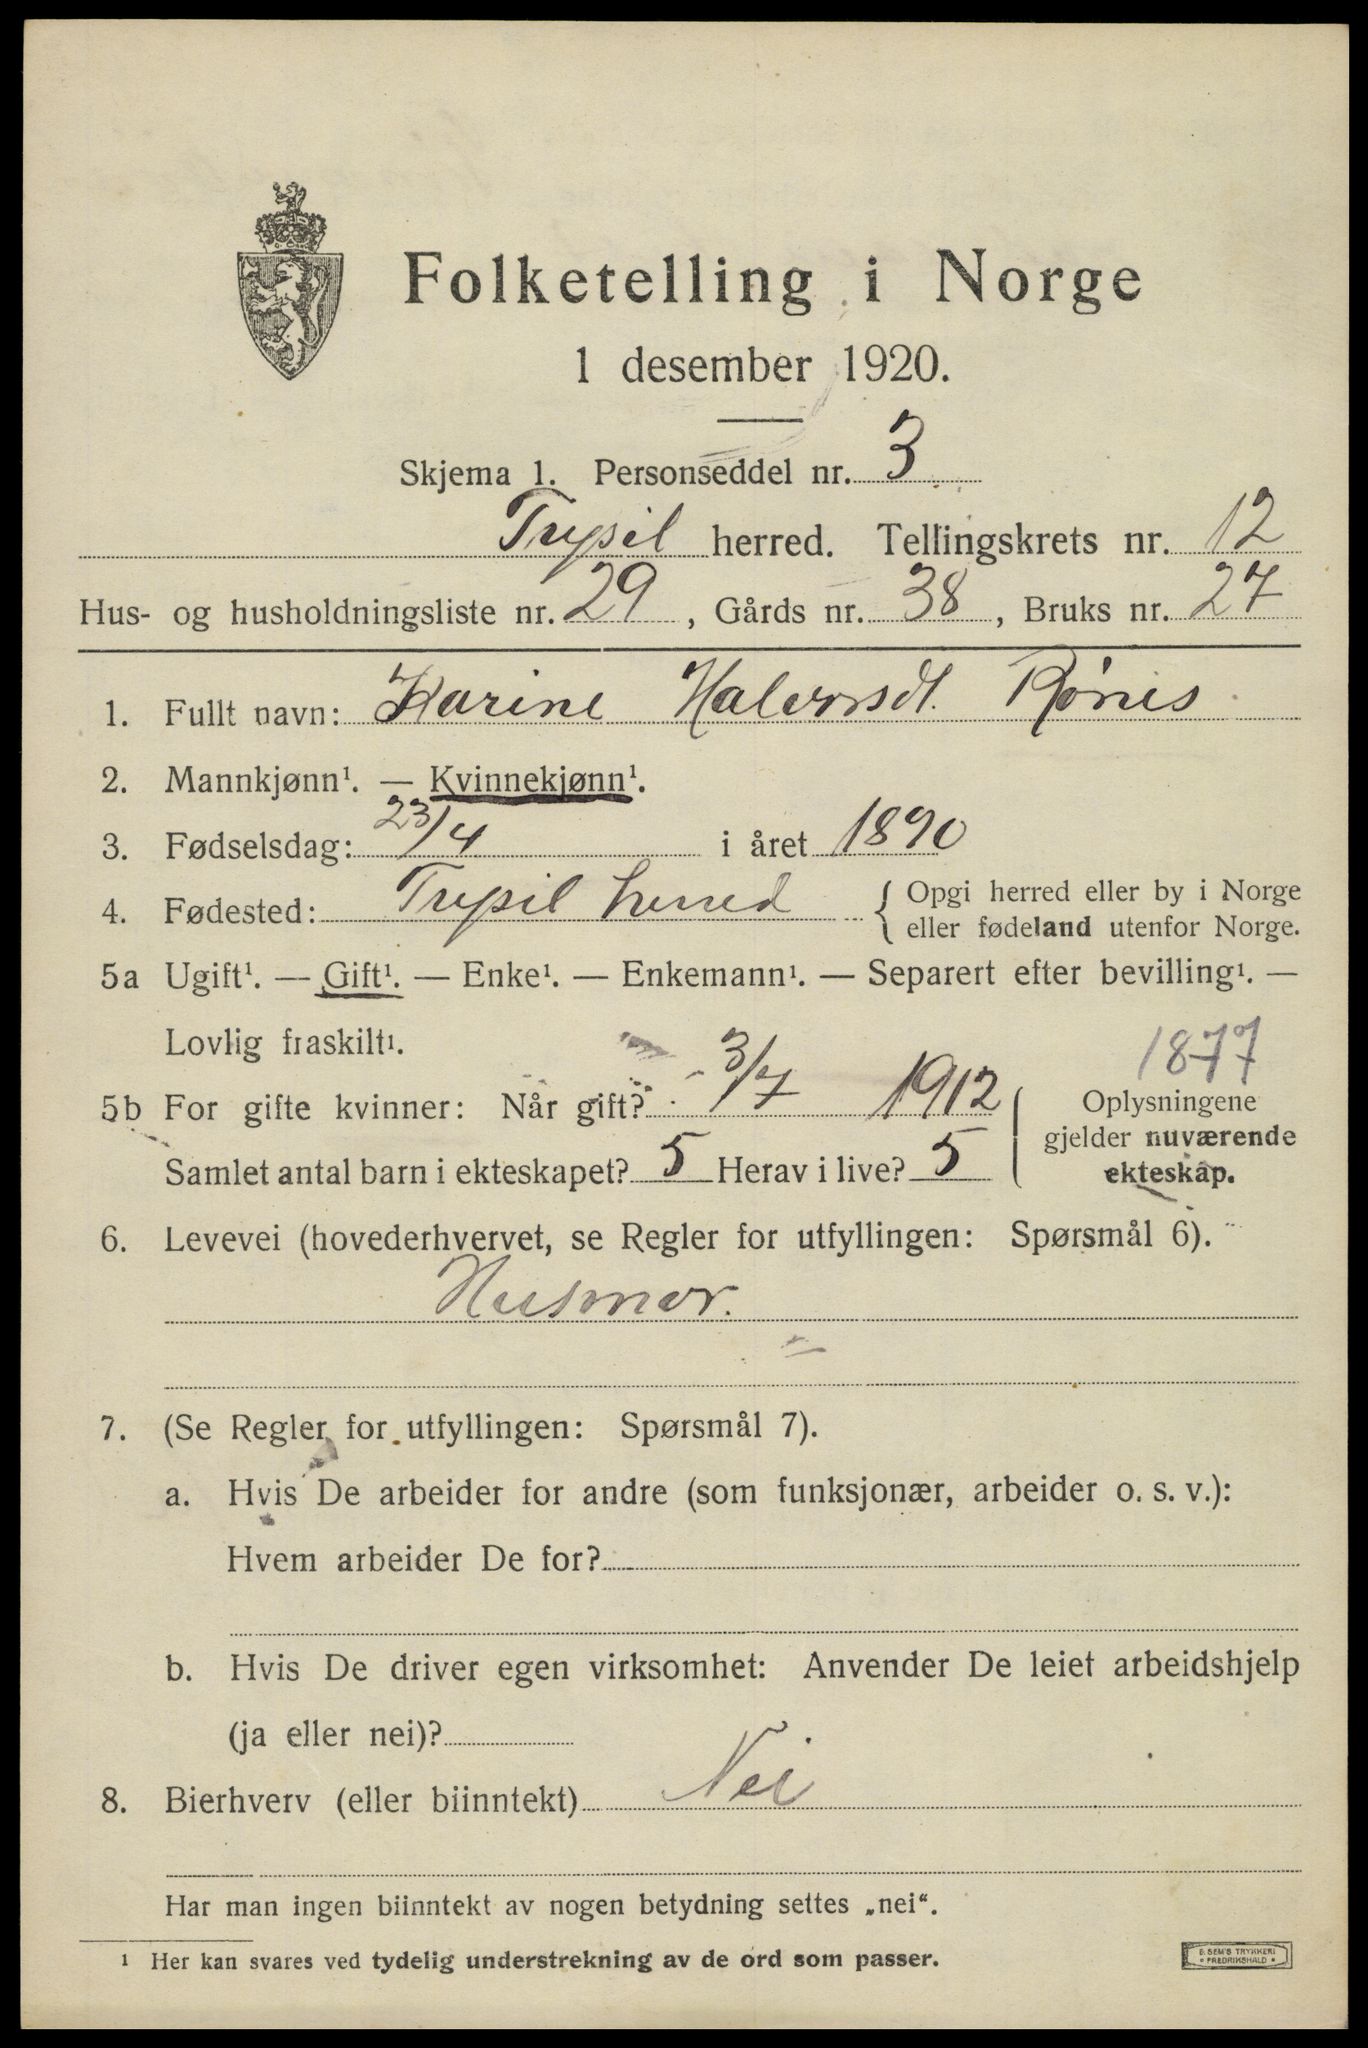 Folketelling i Norge
1 desember 1920.
Skjema 1. Personseddel nr. 3
Trysil herred. Tellingskrets nr. 12
Hus- og husholdningsliste nr. 29, Gårds nr. 38, Bruks nr. 27
1. Fullt navn: Karine Halvorsdt. Rönes
2. Mannkjønn¹. — Kvinnekjønn¹.
3. Fødselsdag: 23/4 i året 1890
4. Fødested: Trysil herred { Opgi herred eller by i Norge
eller fødeland utenfor Norge.
5a Ugift¹. — Gift¹. — Enke¹. — Enkemann¹. — Separert efter bevilling¹. —
Lovlig fraskilt¹.
1877
5b For gifte kvinner: Når gift? 3/7 1912
Samlet antal barn i ekteskapet? 5 Herav i live? 5
Oplysningene
gjelder nuværende
ekteskap.
6. Levevei (hovederhvervet, se Regler for utfyllingen: Spørsmål 6).
Husmor.
7. (Se Regler for utfyllingen: Spørsmål 7).
a. Hvis De arbeider for andre (som funksjonær, arbeider o. s. v.):
Hvem arbeider De for?
b. Hvis De driver egen virksomhet: Anvender De leiet arbeidshjelp
(ja eller nei)?
8. Bierhverv (eller biinntekt) Nei
Har man ingen biinntekt av nogen betydning settes „nei“.
¹ Her kan svares ved tydelig understrekning av de ord som passer.
E. SEM'S TRYKKERI
• FREDRIKSHALD •